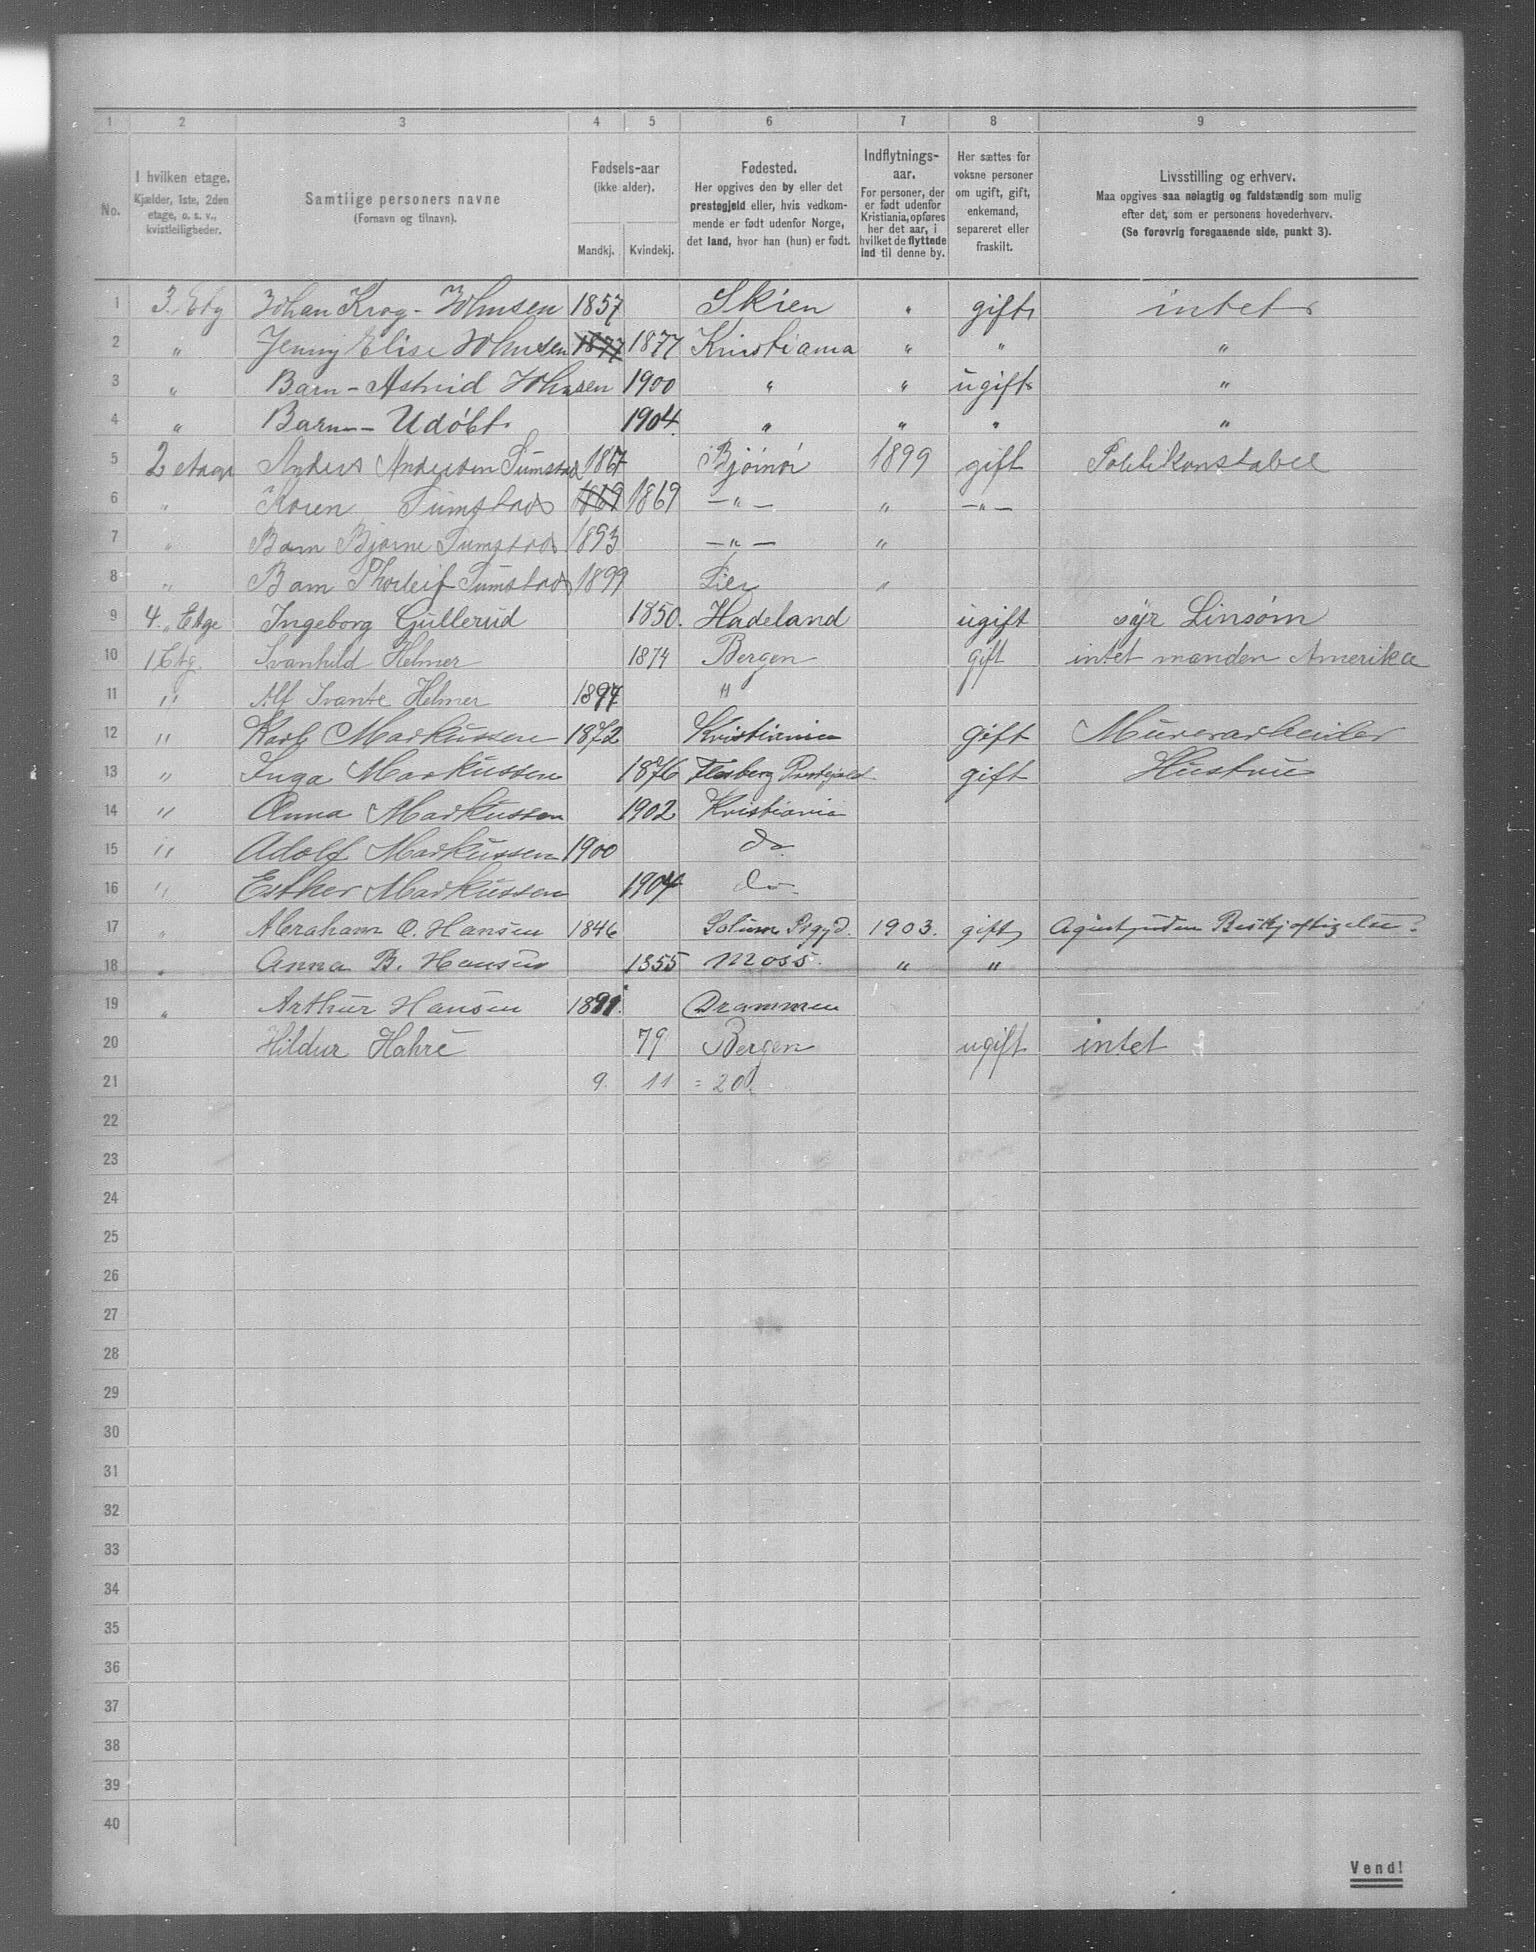 1 2 3 4 5 6 7 8 9
No.
I hvilken etage.
Kjælder, 1ste, 2den
etage, o. s. v.,
kvistleiligheder.
Samtlige personers navne
(Fornavn og tilnavn).
Fødsels-aar
(ikke alder).
Mandkj. Kvindekj.
Fødested.
Her opgives den by eller det
prestegjeld eller, hvis vedkom-
mende er født udenfor Norge,
det land, hvor han (hun) er født.
Indflytnings-
aar.
For personer, der
er født udenfor
Kristiania, opføres
her det aar, i
hvilket de flyttede
ind til denne by.
Her sættes for
voksne personer
om ugift, gift,
enkemand,
separeret eller
fraskilt.
Livsstilling og erhverv.
Maa opgives saa nøiagtig og fuldstændig som mulig
efter det, som er personens hovederhverv.
(Se forøvrig foregaaende side, punkt 3).
1 3. Etg Johan Krog-Johnsen 1857 Skien " gift intet
2 " Jenny Elise Johnsen 1877 1877 Kristiania " " "
3 " Barn - Astrid Johnsen 1900 " " ugift "
4 " Barn - Udøbt 1904. " " " "
5 2 etage Anders Andersen Tumstad 1867 Bjørnør 1899 gift Politikonstabel
6 " Karen Tumstad 1869 1869 - " - " - " -
7 " Barn Bjarne Tumstad 1893 - " - "
8 " Barn Thorleif Tumstad 1899 Lier "
9 4. Etge Ingeborg Gullerud 1850. Hadeland ugift syr Linsøm
10 1 Etg. Svanhild Helmer 1874 Bergen gift intet manden Amerika
11 " Alf Svante Helmer 1897 "
12 " Karl Markussen 1872 Kristiania gift Murerarbeider
13 " Inga Markussen 1876 Flesberg Prestegjeld gift Hustru
14 " Anna Markussen 1902 Kristiania
15 " Adolf Markussen 1900 do
16 " Esther Markussen 1904 do
17 " Abraham O. Hansen 1846 Solum Prgjd. 1903. gift
18 " Anna B. Hansen 1855 Moss. " "
19 " Arthur Hansen 1891. Drammen
20 Hildur Hahre 79 Bergen ugift intet
21 9. 11 = 20
22
23
24
25
26
27
28
29
30
31
32
33
34
35
36
37
38
39
40
Vend!